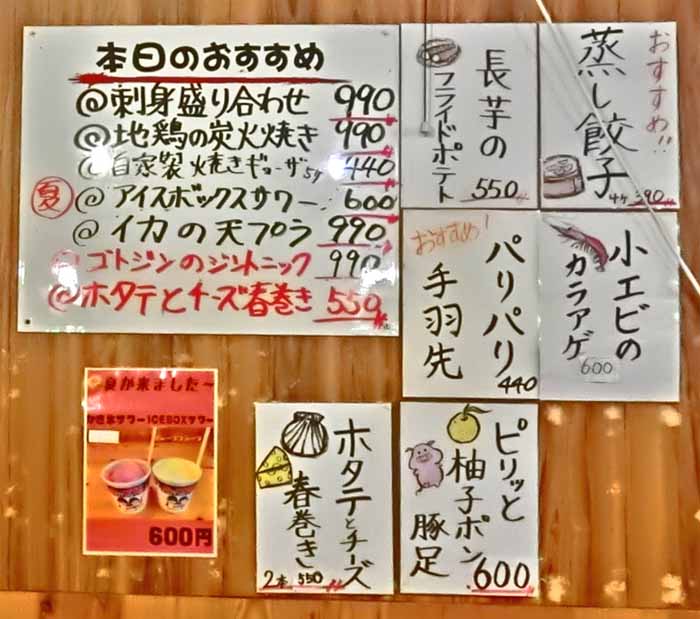 本日のおすすめ
@刺身盛り合わせ 990
@地鶏の炭火焼き 990
@自家製焼きギョーザ5ヶ 440
夏 @アイスボックスサワー 600
@イカの天プラ 990
@ゴトジンのジントニック 990
@ホタテとチーズ春巻き 550
長芋の
フライドポテト
550
おすすめ!!
蒸し餃子
4ケ 390
おすすめ!
パリパリ
手羽先
440
小エビの
カラアゲ
600
〜夏が来ました〜
かき氷サワー ICEBOXサワー
600円
ホタテとチーズ
春巻き
2本 550
ピリッと
柚子ポン
豚足
600